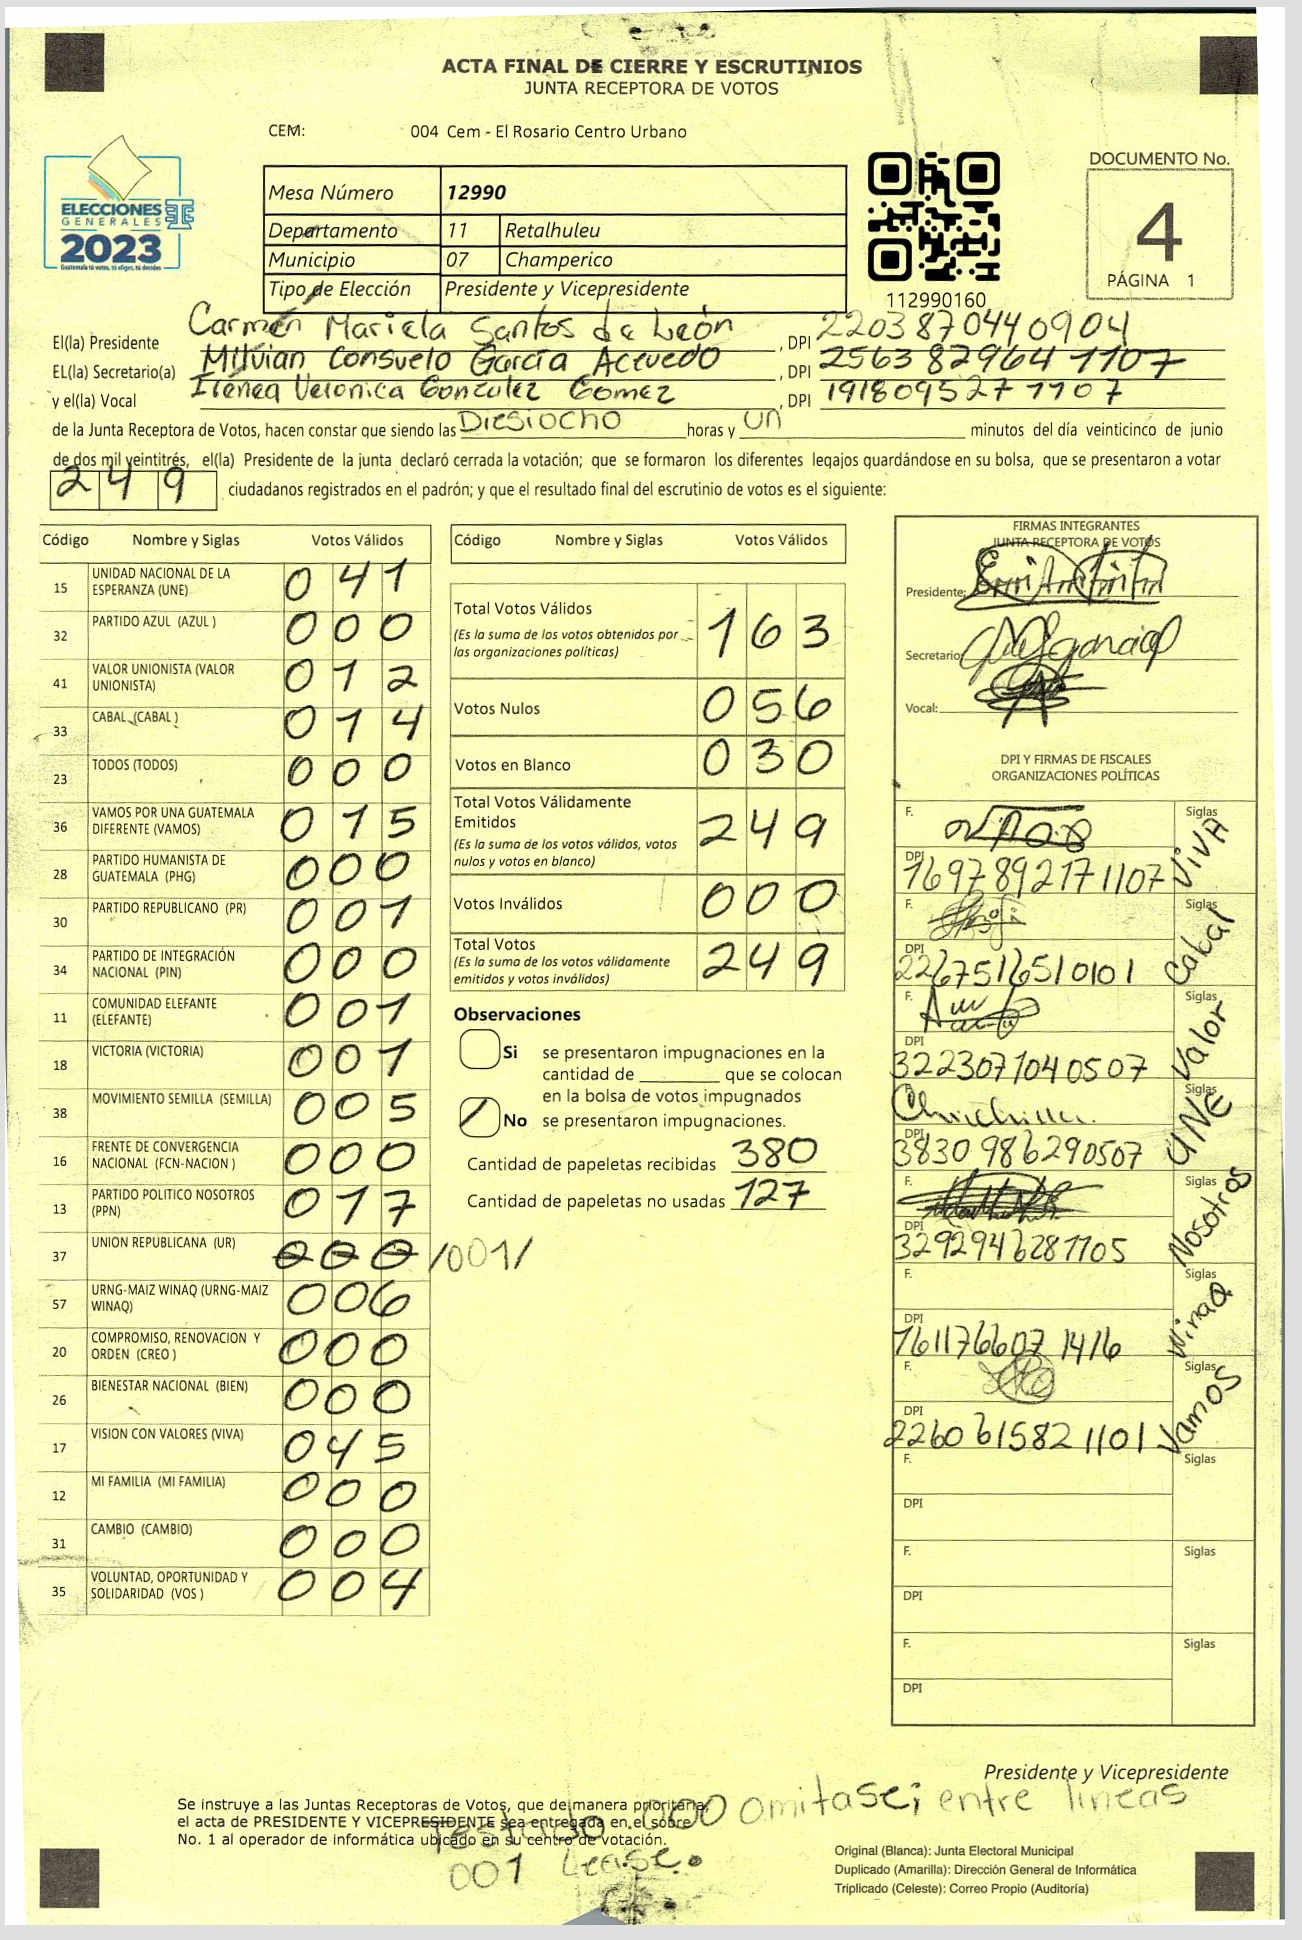 ACTA FINAL DE CIERRE Y ESCRUTINIOS
JUNTA RECEPTORA DE VOTOS
CEM: 004 Cem - El Rosario Centro Urbano
ELECCIONES
GENERALES
2023
Guatemala tú votas, tú eliges, tú decides
Mesa Número 12990
Departamento 11 Retalhuleu
Municipio 07 Champerico
Tipo de Elección Presidente y Vicepresidente
112990160
DOCUMENTO No.
4
PÁGINA 1
El(la) Presidente Carmen Mariela Santos de León, DPI 2203870440904
EL(la) Secretario(a) Milvian Consuelo García Acevedo, DPI 2563 82964 1107
y el(la) Vocal Irenea Veronica Gonzalez Gomez, DPI 191809527 1107
de la Junta Receptora de Votos, hacen constar que siendo las Diesiocho horas y un minutos del día veinticinco de junio
de dos mil veintitrés, el(la) Presidente de la junta declaró cerrada la votación; que se formaron los diferentes legajos guardándose en su bolsa, que se presentaron a votar
249 ciudadanos registrados en el padrón; y que el resultado final del escrutinio de votos es el siguiente:
Código Nombre y Siglas Votos Válidos
15 UNIDAD NACIONAL DE LA ESPERANZA (UNE) 041
32 PARTIDO AZUL (AZUL ) 000
41 VALOR UNIONISTA (VALOR UNIONISTA) 012
33 CABAL (CABAL ) 014
23 TODOS (TODOS) 000
36 VAMOS POR UNA GUATEMALA DIFERENTE (VAMOS) 015
28 PARTIDO HUMANISTA DE GUATEMALA (PHG) 000
30 PARTIDO REPUBLICANO (PR) 001
34 PARTIDO DE INTEGRACIÓN NACIONAL (PIN) 000
11 COMUNIDAD ELEFANTE (ELEFANTE) 001
18 VICTORIA (VICTORIA) 001
38 MOVIMIENTO SEMILLA (SEMILLA) 005
16 FRENTE DE CONVERGENCIA NACIONAL (FCN-NACION ) 000
13 PARTIDO POLITICO NOSOTROS (PPN) 017
37 UNION REPUBLICANA (UR) 000 /001/
57 URNG-MAIZ WINAQ (URNG-MAIZ WINAQ) 006
20 COMPROMISO, RENOVACION Y ORDEN (CREO ) 000
26 BIENESTAR NACIONAL (BIEN) 000
17 VISION CON VALORES (VIVA) 045
12 MI FAMILIA (MI FAMILIA) 000
31 CAMBIO (CAMBIO) 000
35 VOLUNTAD, OPORTUNIDAD Y SOLIDARIDAD (VOS ) 004
Código Nombre y Siglas Votos Válidos
Total Votos Válidos 163
(Es la suma de los votos obtenidos por las organizaciones políticas)
Votos Nulos 056
Votos en Blanco 030
Total Votos Válidamente Emitidos 249
(Es la suma de los votos válidos, votos nulos y votos en blanco)
Votos Inválidos 000
Total Votos 249
(Es la suma de los votos válidamente emitidos y votos inválidos)
Observaciones
Si se presentaron impugnaciones en la
cantidad de ________ que se colocan
en la bolsa de votos impugnados
No se presentaron impugnaciones.
Cantidad de papeletas recibidas 380
Cantidad de papeletas no usadas 127
FIRMAS INTEGRANTES
JUNTA RECEPTORA DE VOTOS
Presidente:
Secretario:
Vocal:
DPI Y FIRMAS DE FISCALES
ORGANIZACIONES POLÍTICAS
F. Siglas VIVA
DPI 1697892171107
F. Siglas Cabal
DPI 2267516510101
F. Siglas Valor
DPI 3223071040507
F. Siglas UNE
DPI 3830986290507
F. Siglas Nosotros
DPI 3292946281105
F. Siglas WinaQ
DPI 1611766071416
F. Siglas Vamos
DPI 2260615821101
F. Siglas
DPI
F. Siglas
DPI
F. Siglas
DPI
Presidente y Vicepresidente
Se instruye a las Juntas Receptoras de Votos, que de manera prioritaria,
el acta de PRESIDENTE Y VICEPRESIDENTE sea entregada en el sobre
No. 1 al operador de informática ubicado en su centro de votación.
Testado 000 omitase; entre lineas
001 Lease.
Original (Blanca): Junta Electoral Municipal
Duplicado (Amarilla): Dirección General de Informática
Triplicado (Celeste): Correo Propio (Auditoría)